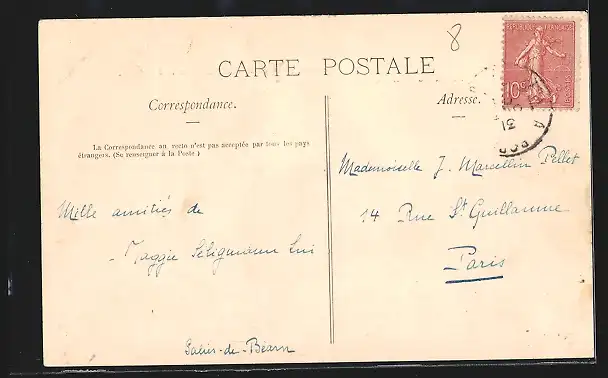 8
CARTE POSTALE
REPUBLIQUE FRANÇAISE
10c
Correspondance.
Adresse.
31
La Correspondance au recto n'est pas acceptée par tous les pays
étrangers. (Se renseigner à la Poste)
Mademoiselle J. Marcellin Pellet
14 Rue St Guillaume
Paris
Mille amitiés de
Maggie Seligmann Lui
Salies-de-Béarn